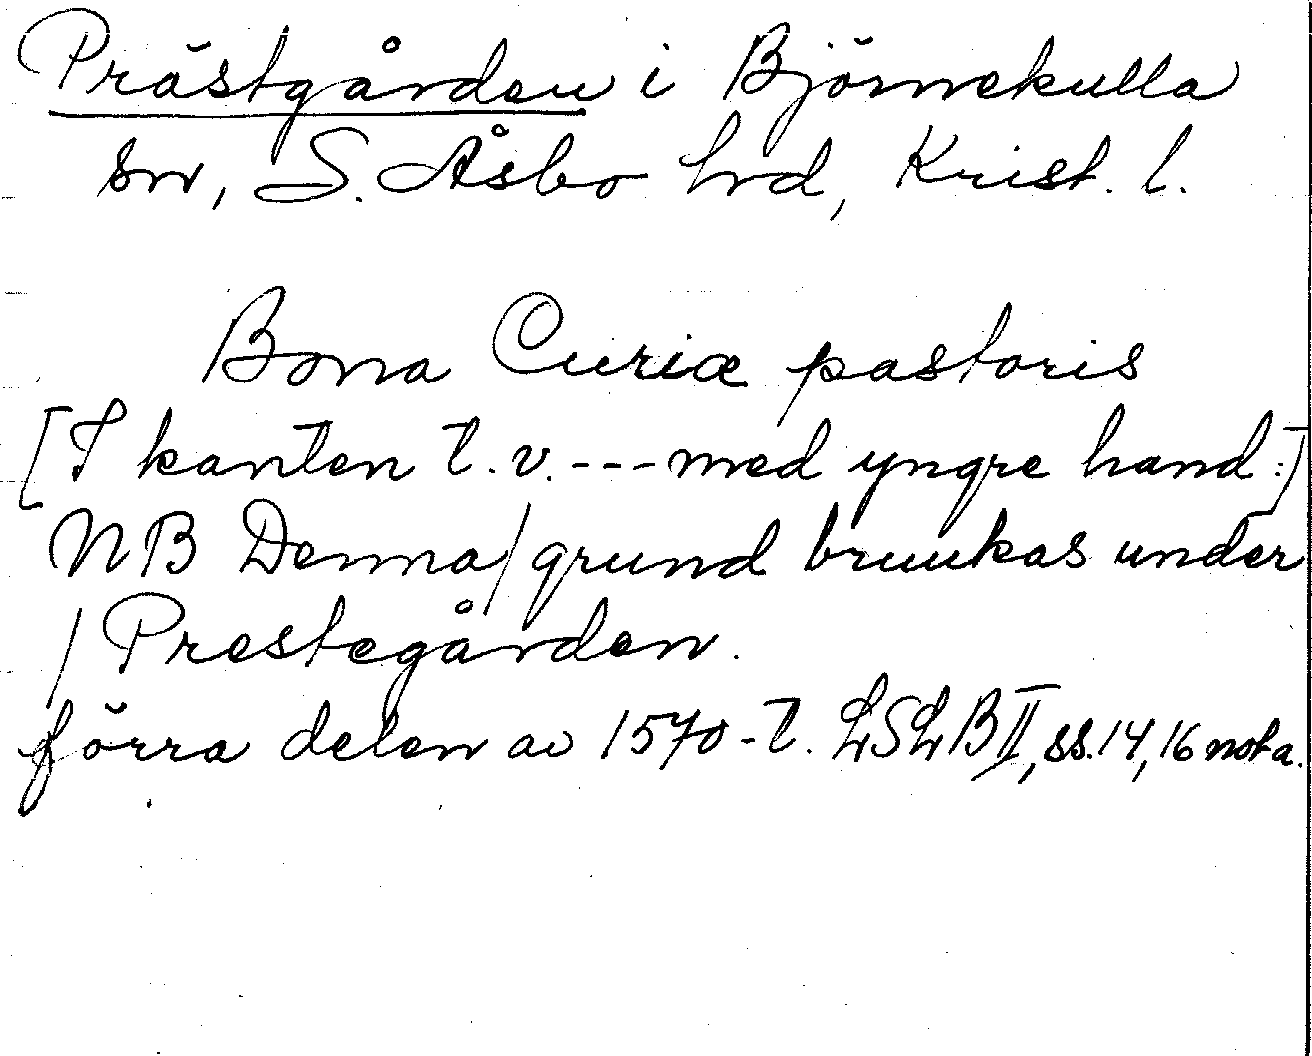 Prästgården i Björnekulla
sn, S. Åsbo hrd, Krist. l.
Bona Curiæ pastoris
[I kanten t.v. --- med yngre hand:]
NB Denna/grund bruukas under
/Prestegården.
förra delen av 1570-t. LSLB II, ss. 14, 16 nota.